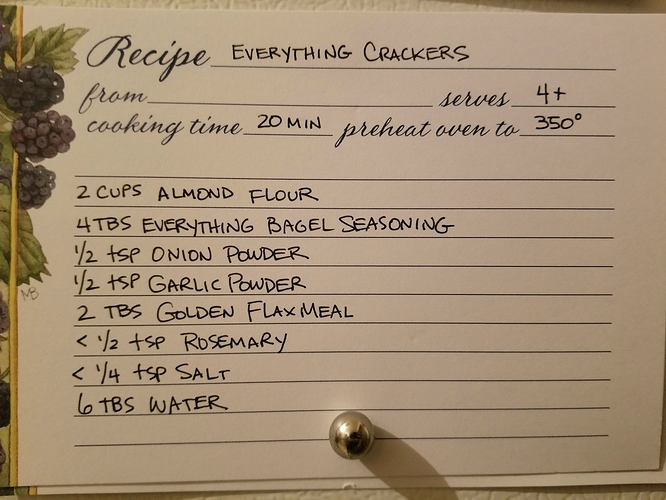 Recipe EVERYTHING CRACKERS
from serves 4+
cooking time 20 MIN preheat oven to 350°
2 CUPS ALMOND FLOUR
4 TBS EVERYTHING BAGEL SEASONING
1/2 tSP ONION POWDER
1/2 tSP GARLIC POWDER
2 TBS GOLDEN FLAXMEAL
< 1/2 tSP ROSEMARY
< 1/4 tSP SALT
6 TBS WATER
MB